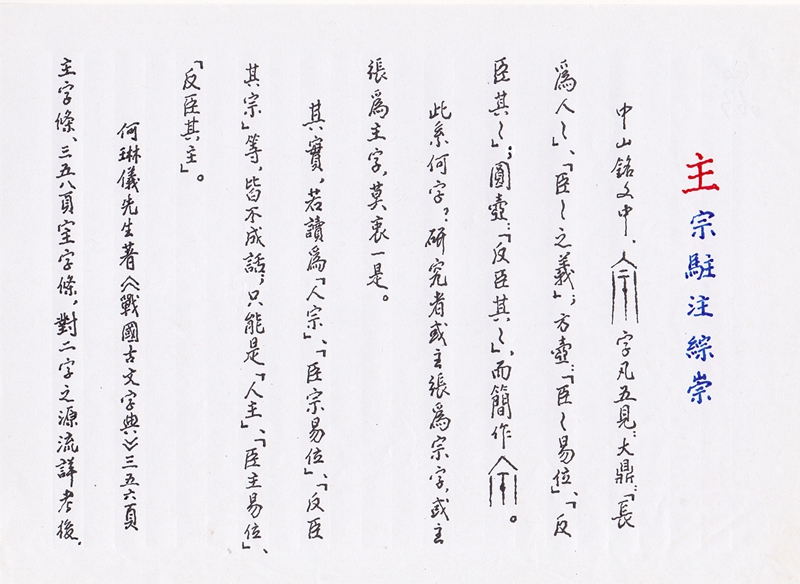 主 宗駐注綜崇
中山銘文中、字凡五見：大鼎：「長
爲人〻」、「臣〻之義」；方壺：「臣〻易位」、「反
臣其〻」；圓壺：「反臣其〻」、而簡作。
此系何字？研究者或主張爲宗字，或主
張爲主字，莫衷一是。
其實，若讀爲「人宗」、「臣宗易位」、「反臣
其宗」等，皆不成話；只能是「人主」、「臣主易位」、
「反臣其主」。
何琳儀先生著《戰國古文字典》三五六頁
主字條、三五八頁宔字條，對二字之源流詳考後，